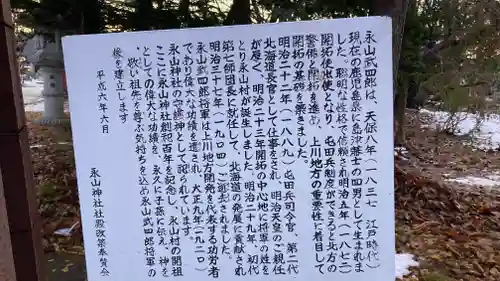 永山武四郎は、天保八年(一八三七 江戸時代)
現在の鹿児島県に島津藩士の四男として生まれま
した。聡明な性格で信頼され明治五年(一八七二)
開拓使出仕となり、屯田兵制度ができると北方の
警備と開拓を進め、上川地方の重要性に着目して
開拓の基礎を築きました。
明治二十二年(一八八九)屯田兵司令官、第二代
北海道長官として仕事をされ、明治天皇のご親任
が厚く、明治二十三年開拓の中心地に将軍の姓を
とり永山村が誕生しました。明治二十九年、初代
第七師団長に就任して、北海道の発展に貢献され
明治三十七年(一九〇四)逝去されました。
永山武四郎将軍は上川地方開発を代表する功労者
であり偉大な功績を讃え、大正九年(一九二〇)
永山神社の守護神として祀られています。
ここに永山神社創祀百年を記念し、永山村の開祖
としての偉大な功績を、永久に子孫に伝え、神を
敬い祖先を尊ぶ気持ちを込め永山武四郎将軍の
像を建立します。
平成六年六月
永山神社社殿改築奉賛会